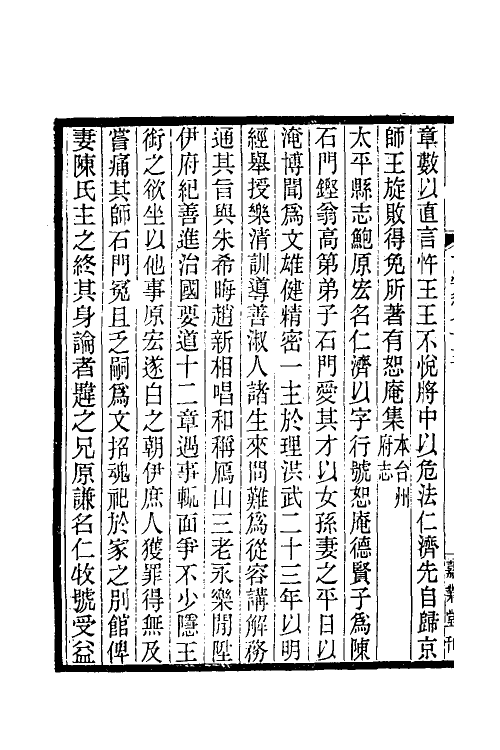 章數以直言忤王王不悅將中以危法仁濟先自歸京
師王旋敗得免所著有恕庵集本台州府志
太平縣志鮑原宏名仁濟以字行號恕庵德賢子爲陳
石門鏗翁高第弟子石門愛其才以女孫妻之平日以
淹博聞爲文雄健精密一主於理洪武二十三年以明
經舉授樂清訓導善淑人諸生來問難爲從容講解務
通其旨與朱希晦趙新相唱和稱鴈山三老永樂閒陞
伊府紀善進治國要道十二章遇事輒面爭不少隱王
銜之欲坐以他事原宏遂白之朝伊庶人獲罪得無及
嘗痛其師石門冤且乏嗣爲文招魂祀於家之別館俾
妻陳氏主之終其身論者韙之兄原謙名仁牧號受益
嘉業堂刊